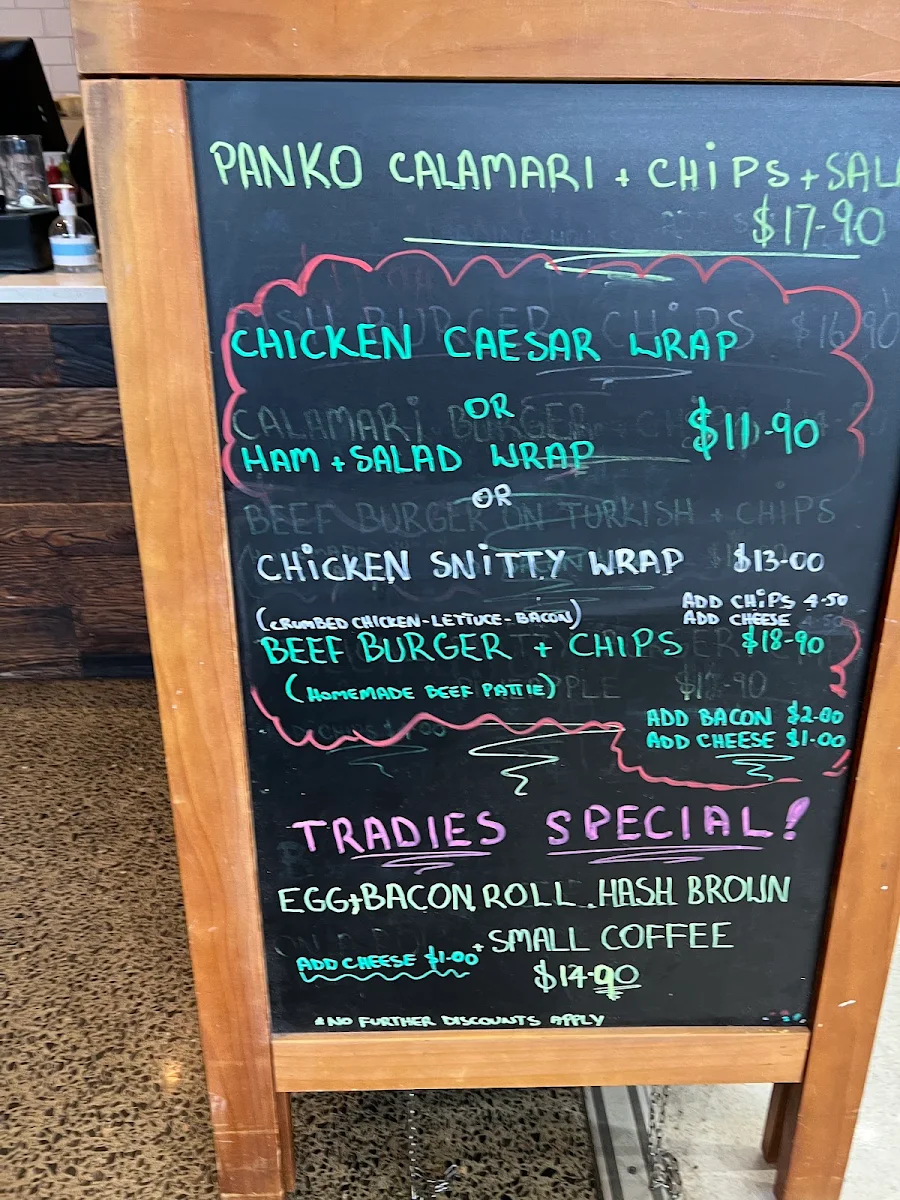 PANKO CALAMARI + CHiPS + SAL
$17-90
CHICKEN CAESAR WRAP
OR
$11-90
HAM + SALAD WRAP
OR
BEEF BURGER ON TURKISH + CHIPS
CHiCKEN SNiTTY WRAP $13-00
(CRUMBED CHICKEN-LETTUCE-BACON)
ADD CHiPS 4-50
ADD CHEESE
BEEF BURGER + CHIPS $18-90
(HOMEMADE BEEF PATTIE)
ADD BACON $2-00
ADD CHEESE $1-00
TRADIES SPECIAL!
EGG+BACON ROLL . HASH BROWN
+ SMALL COFFEE
ADD CHEESE $1-00
$14-90
*NO FURTHER DISCOUNTS APPLY